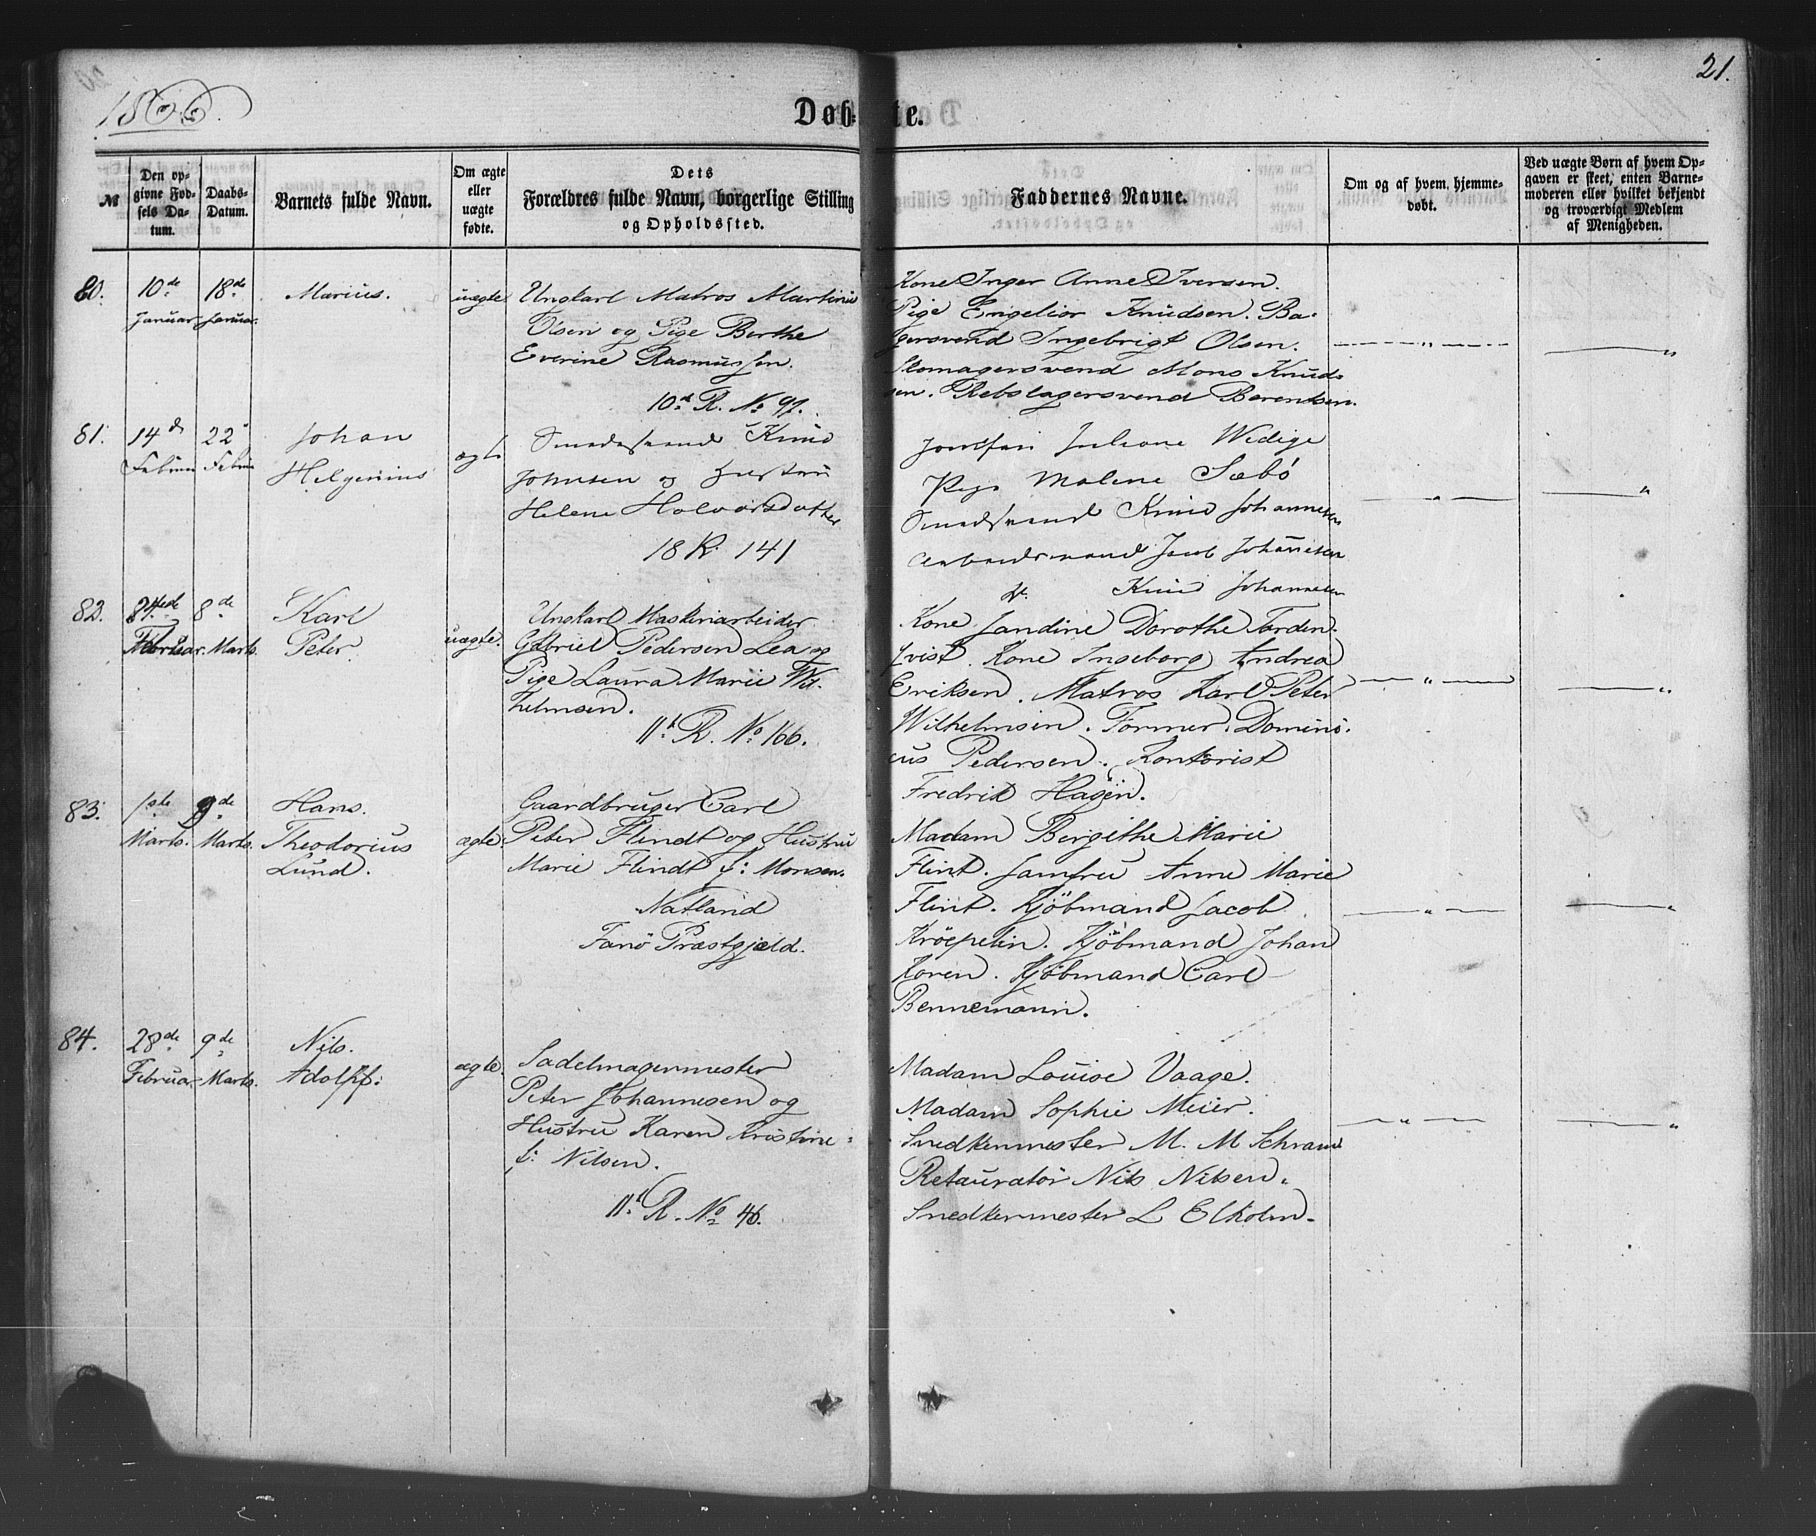 1866.
21.
Døbte.
№
Den opgivne Fødsels Datum.
Daabs-Datum.
Barnets fulde Navn.
Om ægte eller uægte fødte.
Dets Forældres fulde Navn, borgerlige Stilling og Opholdssted.
Faddernes Navne.
Om og af hvem hjemmedøbt.
Ved uægte Børn af hvem Opgaven er skeet, enten Barnemoderen eller hvilket bekjendt og troværdigt Medlem af Menigheden.
80.
10de Januar
18de Januar.
Marius.
uægte
Ungkarl Matros Martinus
Olsen og Pige Berthe
Everine Rasmussen.
10d R. No 97.
Kone Inger Anne Iversen.
Pige Engelior Knudsen. Ba-
gersvend Ingebrigt Olsen.
Skomagersvend Mons Knud-
sen. Rebslagersvend Berentsen.
81.
14d
22
Johan
Helgenius
ægte
Knud
Johnsen og Hustru
Helene Halvorsdatter
18 R. 141
Jomfru Juliane Wedige
Pige Malene Sæbö
Knud Johannesen
Arbeidsmand Jacob Johannesen
Knud Johannesen
82.
Februar.
8de Marts.
Karl
Peter.
uægte.
Ungkarl Maskinarbeider
Gabriel Pedersen Lea og
Pige Laura Marie Wil-
helmsen.
11t R. No 166.
Kone Jandine Dorothe Torden-
qvist. Kone Ingeborg Andrea
Eriksen. Matros Karl Peter
Wilhelmsen. Former Domini-
cus Pedersen. Kontorist
Fredrik Hagen.
83.
1ste Marts.
9de Marts.
Hans.
Theodorius
Lund.
ægte.
Gaardbruger Carl
Peter Flindt og Hustru
Marie Flindt f: Monsen.
Natland
Fanö Præstgjæld.
Madam Bergithe Marie
Flint. Jomfru Anne Marie
Flint. Kjöbmand Jacob
Kröepelin. Kjöbmand Johan
Koren. Kjöbmand Carl
Bennemann.
84.
28de Februar
9de Marts.
Nils.
Adolf:
ægte.
Sadelmagermester
Peter Johannesen og
Hustru Karen Kristine
f: Nilsen.
11t R. No 46.
Madam Louise Vaage.
Madam Sophie Meier.
Snedkermester M. M Schram
Retauratör Nils Nilsen.
Snedkermester L Elholm.